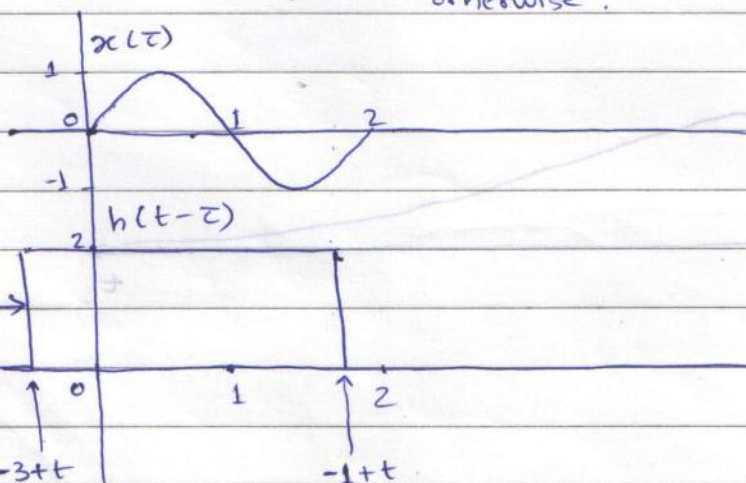 otherwise.
x(τ)
1
0 1 2
-1
h(t-τ)
2
0 1 2
-3+t -1+t